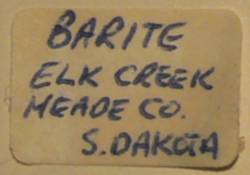 BARITE
ELK CREEK
MEADE CO.
S. DAKOTA